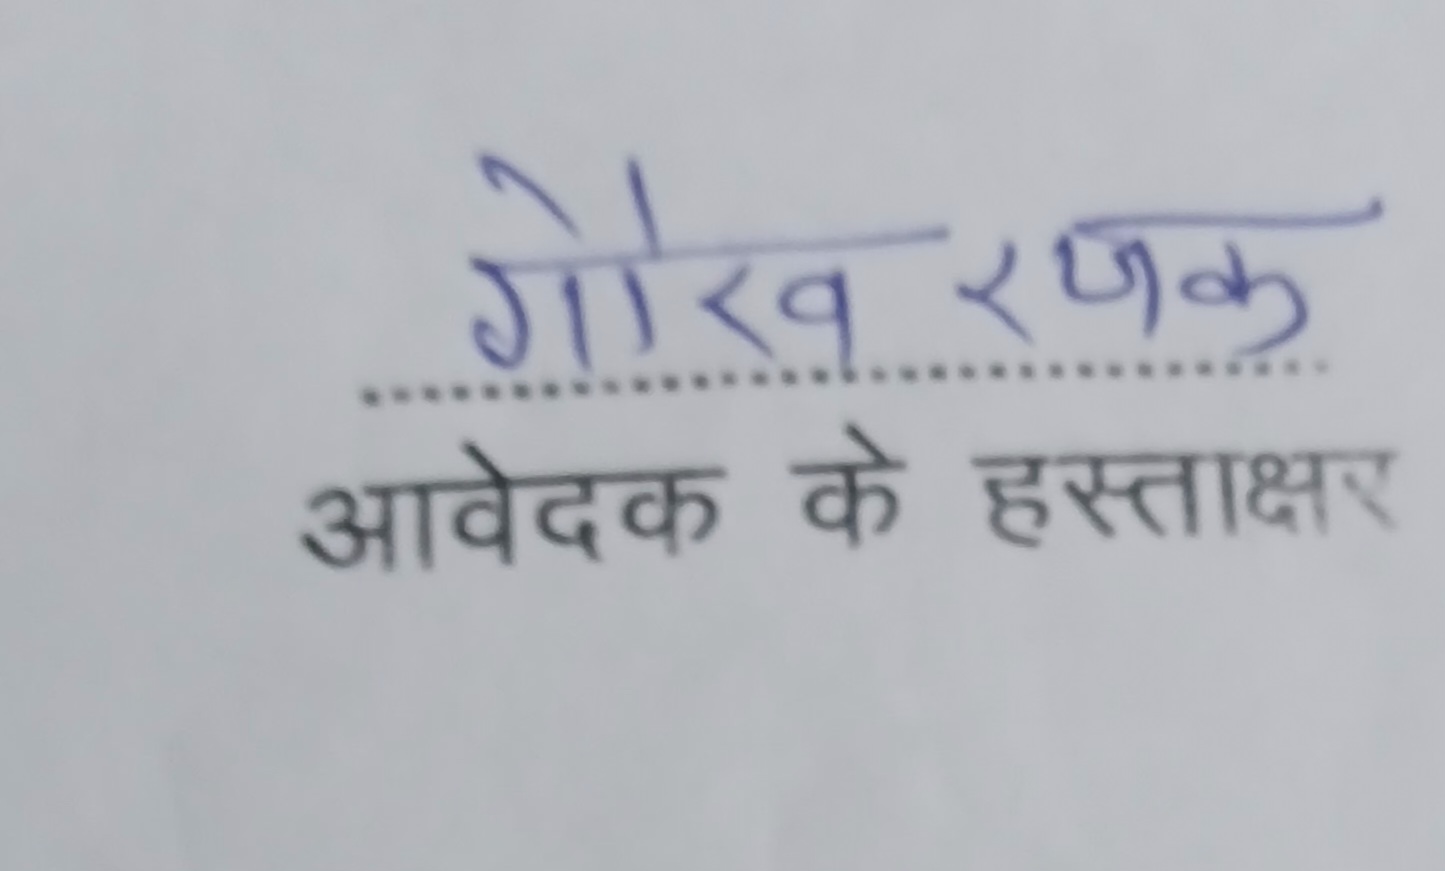 गौरव रजक
आवेदक के हस्ताक्षर